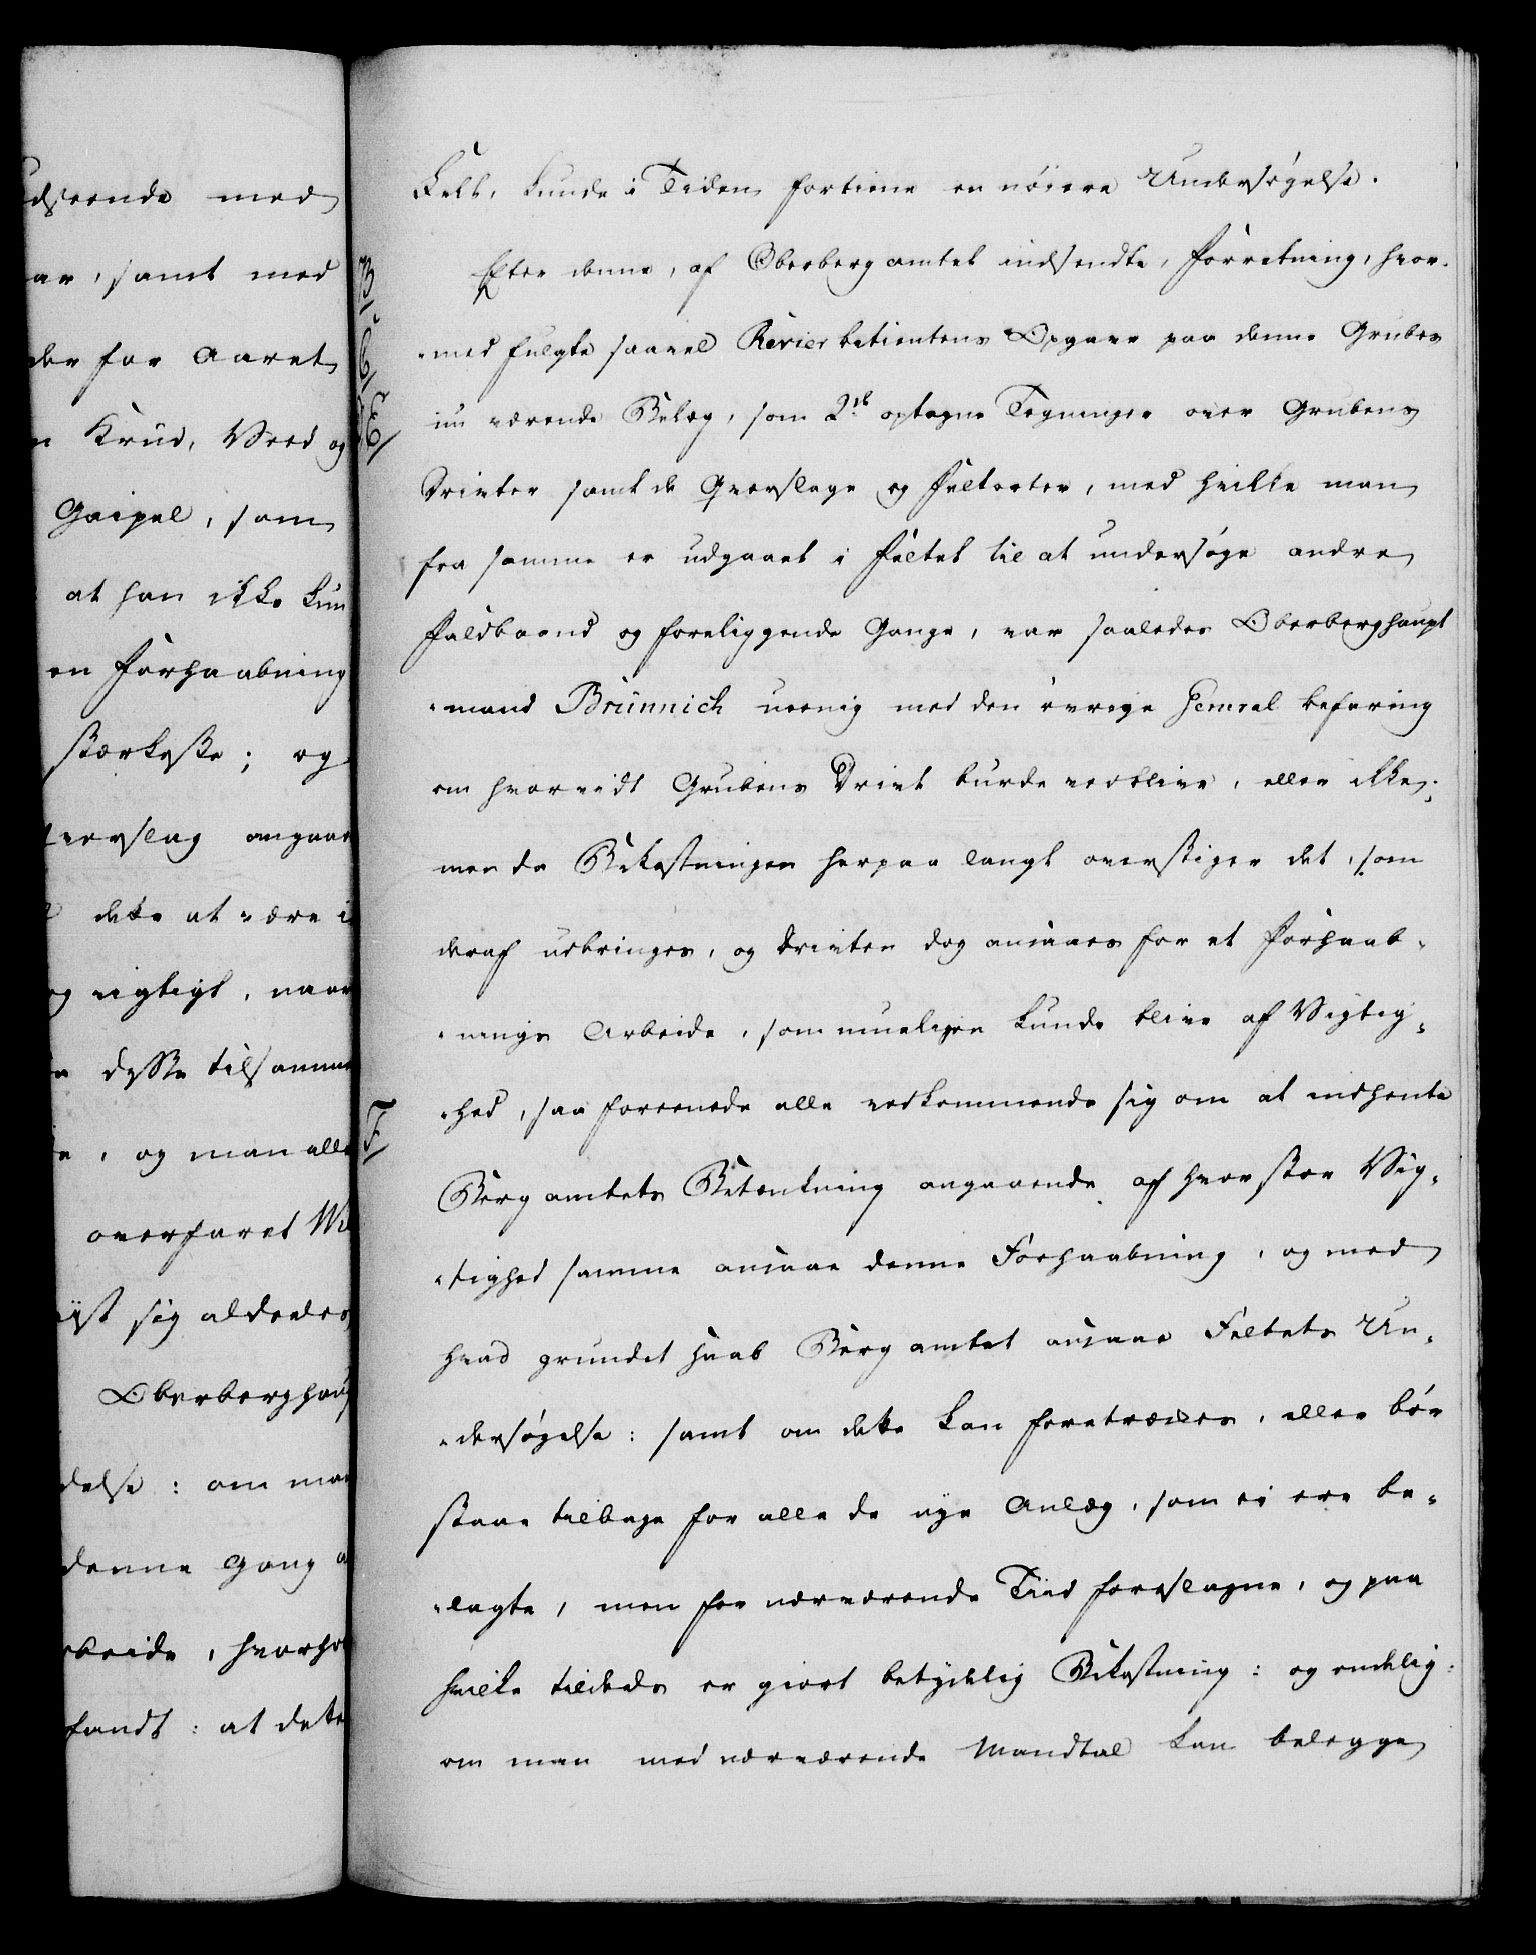 dseende med
ar, samt med
der for Aaret
n Krud, Veed og
Gaipel, som
at han ikke kun
en Forhaabning
stærkeste; og
verslag angaae
dette at være i
og rigtigt, naar
disse tilsamme
, og man alle
overfaret
iist sig aldeeles
Oberberghaup
delse: om man
denne Gang a
rbeide, hvorfor
fandt: at dette
Feldt, kunde i Tiden fortiene en nöiere Undersögelse.
Efter denne, af Oberbergamtet indsendte, Forretning, hvor-
B, C, E
-med fulgte saavel Revierbetientens Opgave paa denne Grubes
nu værende Belæg, som 2de optagne Tegninger over Grubens
Drivter samt de Qverslage og Feltorter, med hvilke man
fra samme er udgaaet i Feltet til at undersøge andre
Faldbaand og foreliggende Gange, var saaledes Oberberghaupt
-mand Brünnich ueenig med den øvrige General befaring
om hvorvidt Grubens Drivt burde vedblive, eller ikke;
men da Bekostningen herpaa langt overstiger det, som
deraf udbringes, og Drivten dog ansaaes for et Forhaab-
-nings Arbeide, som mueligen kunde blive af Vigtig-
F
-hed, saa foreenede alle vedkommende sig om at indhente
Bergamtets Betænkning angaaende af hvor stor Vig-
-tighed samme ansaae denne Forhaabning, og med
hvad grundet Haab Bergamtet ansaae Feltets Un-
-dersøgelse: samt om dette kan foretrækkes, eller bør
staae tilbage for alle de nye Anlæg, som ei ere be-
-lagte, men for nærværende Tiid foreslagne, og paa
hvilke tildeels er giort betydelig Bekostning: og endelig:
om man med nærværende Mandtal kan belegge